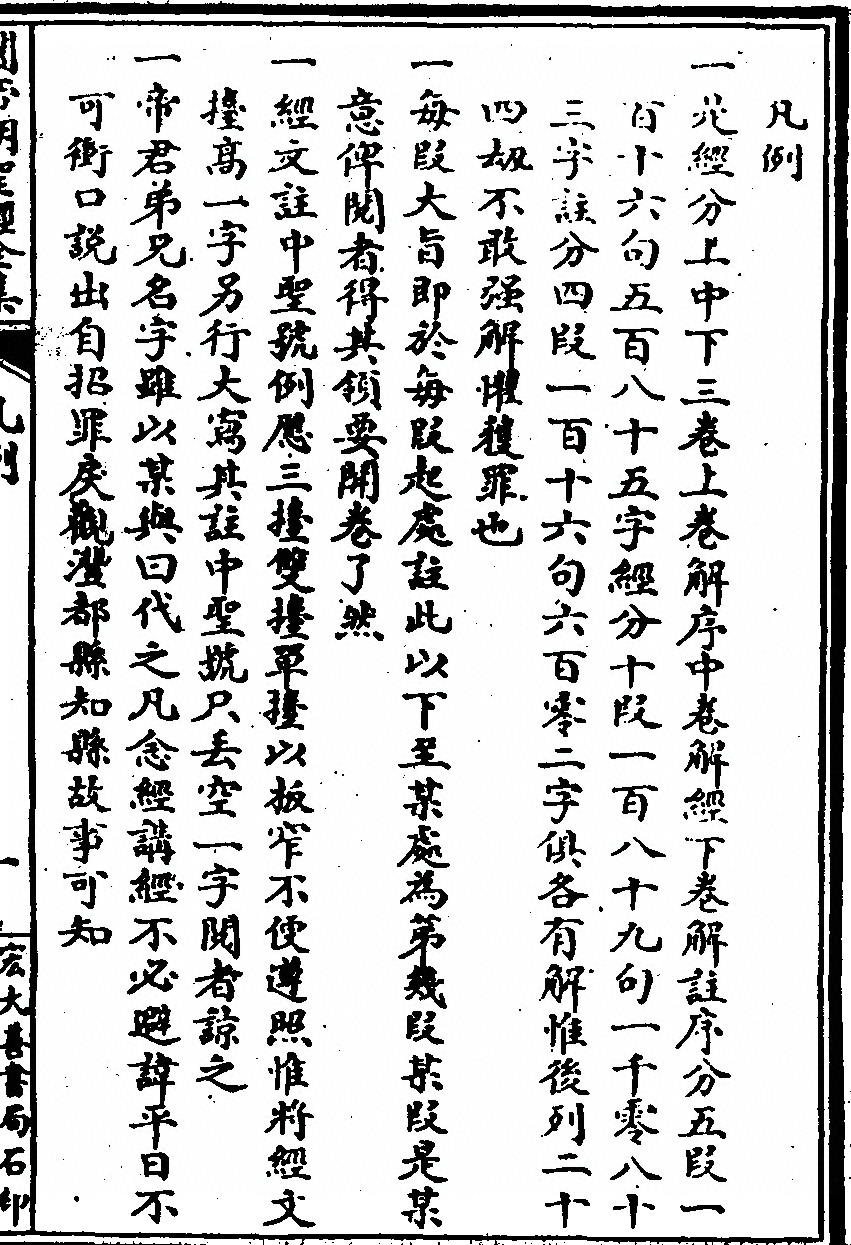 凡例
一茲經分上中下三卷上卷解序中卷解經下卷解註序分五段一
百十六句五百八十五字經分十段一百八十九句一千零八十
三字註分四段一百十六句六百零二字俱各有解惟後列二十
四劫不敢强解懼獲罪也
一每段大旨即於每段起處註此以下至某處為第幾段某段是某
意俾閱者得其領要開卷了然
一經文註中聖號例應三擡雙擡單擡以板窄不便遵照惟將經文
擡高一字另行大寫其註中聖號只丢空一字閱者諒之
一帝君弟兄名字雖以某與曰代之凡念經講經不必避諱平日不
可衝口說出自招罪戾觀灃都縣知縣故事可知
關帝明聖經全集
凡例
一
宏大善書局石印